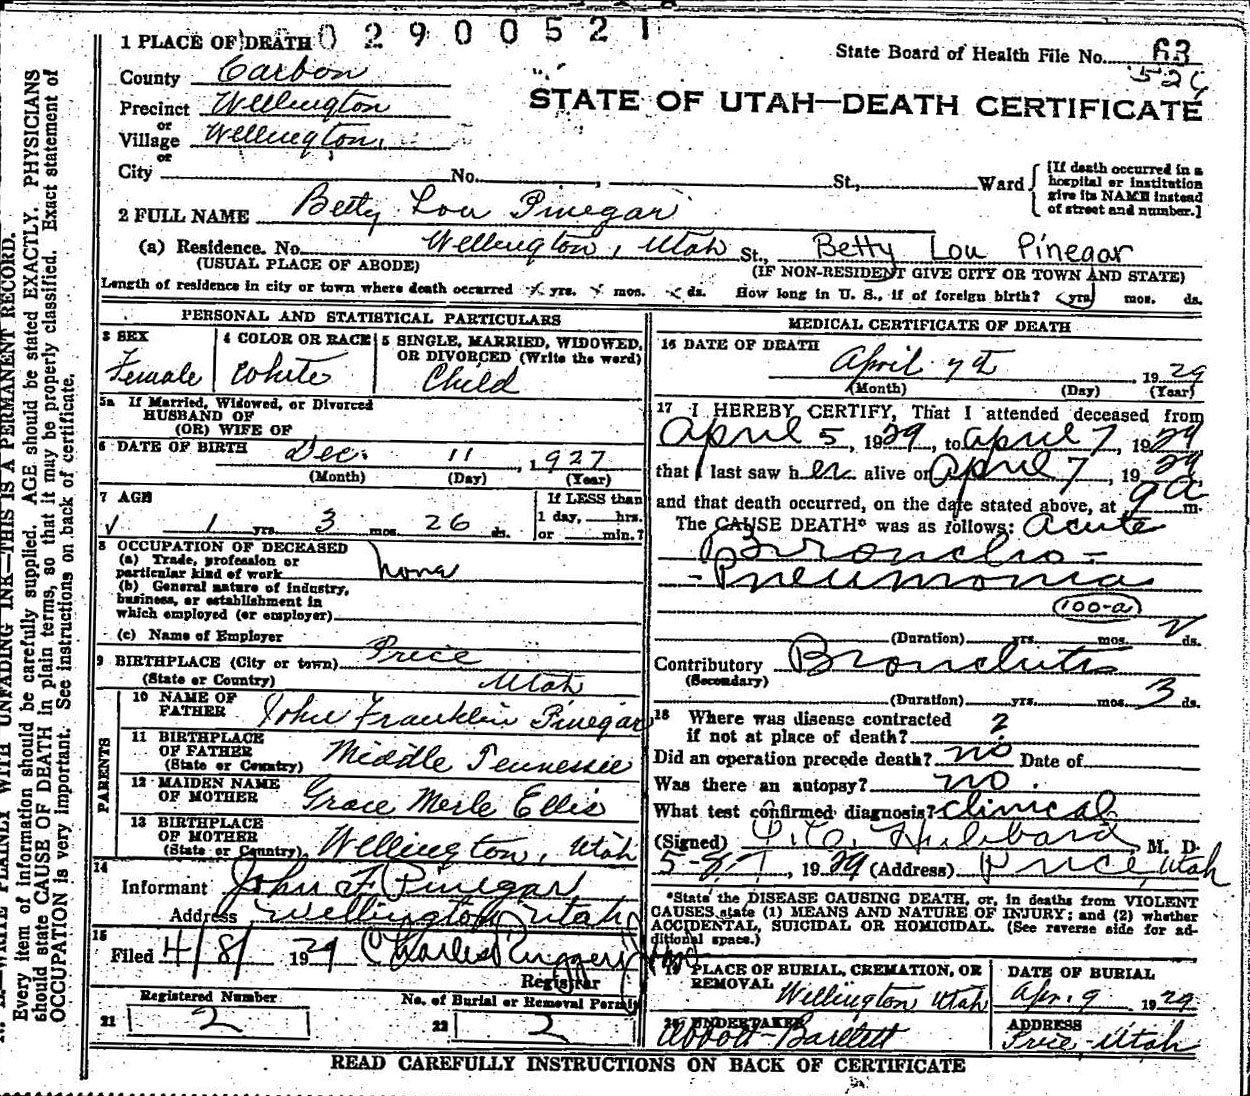 0 2 9 0 0 5 2 1
1 PLACE OF DEATH
State Board of Health File No. 63
County Carbon
Precinct Wellington
STATE OF UTAH—DEATH CERTIFICATE
or
Village Wellington
or
City No. , St., Ward
[If death occurred in a
hospital or institution
give its NAME instead
of street and number.]
2 FULL NAME Betty Lou Pinegar
(a) Residence. No. Wellington, Utah St., Betty Lou Pinegar
(USUAL PLACE OF ABODE) (IF NON-RESIDENT GIVE CITY OR TOWN AND STATE)
Length of residence in city or town where death occurred yrs. mos. ds. How long in U. S., if of foreign birth? yrs. mos. ds.
PERSONAL AND STATISTICAL PARTICULARS
3 SEX
Female
4 COLOR OR RACE
White
5 SINGLE, MARRIED, WIDOWED,
OR DIVORCED (Write the word)
Child
5a If Married, Widowed, or Divorced
HUSBAND OF
(OR) WIFE OF
6 DATE OF BIRTH Dec. 11, 1927
(Month) (Day) (Year)
7 AGE
1 yrs. 3 mos. 26 ds.
If LESS than
1 day, hrs.
or min.?
8 OCCUPATION OF DECEASED
(a) Trade, profession or
particular kind of work none
(b) General nature of industry,
business, or establishment in
which employed (or employer)
(c) Name of Employer
9 BIRTHPLACE (City or town) Price
(State or Country) Utah
PARENTS
10 NAME OF
FATHER John Franklin Pinegar
11 BIRTHPLACE
OF FATHER
(State or Country) Middle Tennessee
12 MAIDEN NAME
OF MOTHER Grace Merle Ellis
13 BIRTHPLACE
OF MOTHER
(State or Country) Wellington, Utah
14
Informant John F Pinegar
Address Wellington Utah
15
Filed 4/8/ 1929 Charles
Registrar
Registered Number
21 2
No. of Burial or Removal Permit
22 2
MEDICAL CERTIFICATE OF DEATH
16 DATE OF DEATH
April 7th 1929
(Month) (Day) (Year)
17 I HEREBY CERTIFY, That I attended deceased from
April 5, 1929, to April 7, 1929
that I last saw her alive on April 7, 1929
and that death occurred, on the date stated above, at 9 a m.
The CAUSE DEATH* was as follows: Acute
Broncho-
-Pneumonia
100-a
(Duration) yrs. mos. 2 ds.
Contributory Bronchitis
(Secondary)
(Duration) yrs. mos. 3 ds.
18 Where was disease contracted
if not at place of death? ?
Did an operation precede death? no Date of
Was there an autopsy? no.
What test confirmed diagnosis? clinical
(Signed) Hubbard M. D.
1929 (Address) Price, Utah
*State the DISEASE CAUSING DEATH, or, in deaths from VIOLENT
CAUSES state (1) MEANS AND NATURE OF INJURY; and (2) whether
ACCIDENTAL, SUICIDAL OR HOMICIDAL. (See reverse side for ad-
ditional space.)
19 PLACE OF BURIAL, CREMATION, OR
REMOVAL Wellington Utah
DATE OF BURIAL
Apr. 9 1929
20 UNDERTAKER
Abbott-Bartlett
ADDRESS
Price-Utah
READ CAREFULLY INSTRUCTIONS ON BACK OF CERTIFICATE
WRITE PLAINLY WITH UNFADING INK—THIS IS A PERMANENT RECORD.
Every item of information should be carefully supplied. AGE should be stated EXACTLY. PHYSICIANS
should state CAUSE OF DEATH in plain terms, so that it may be properly classified. Exact statement of
OCCUPATION is very important. See instructions on back of certificate.